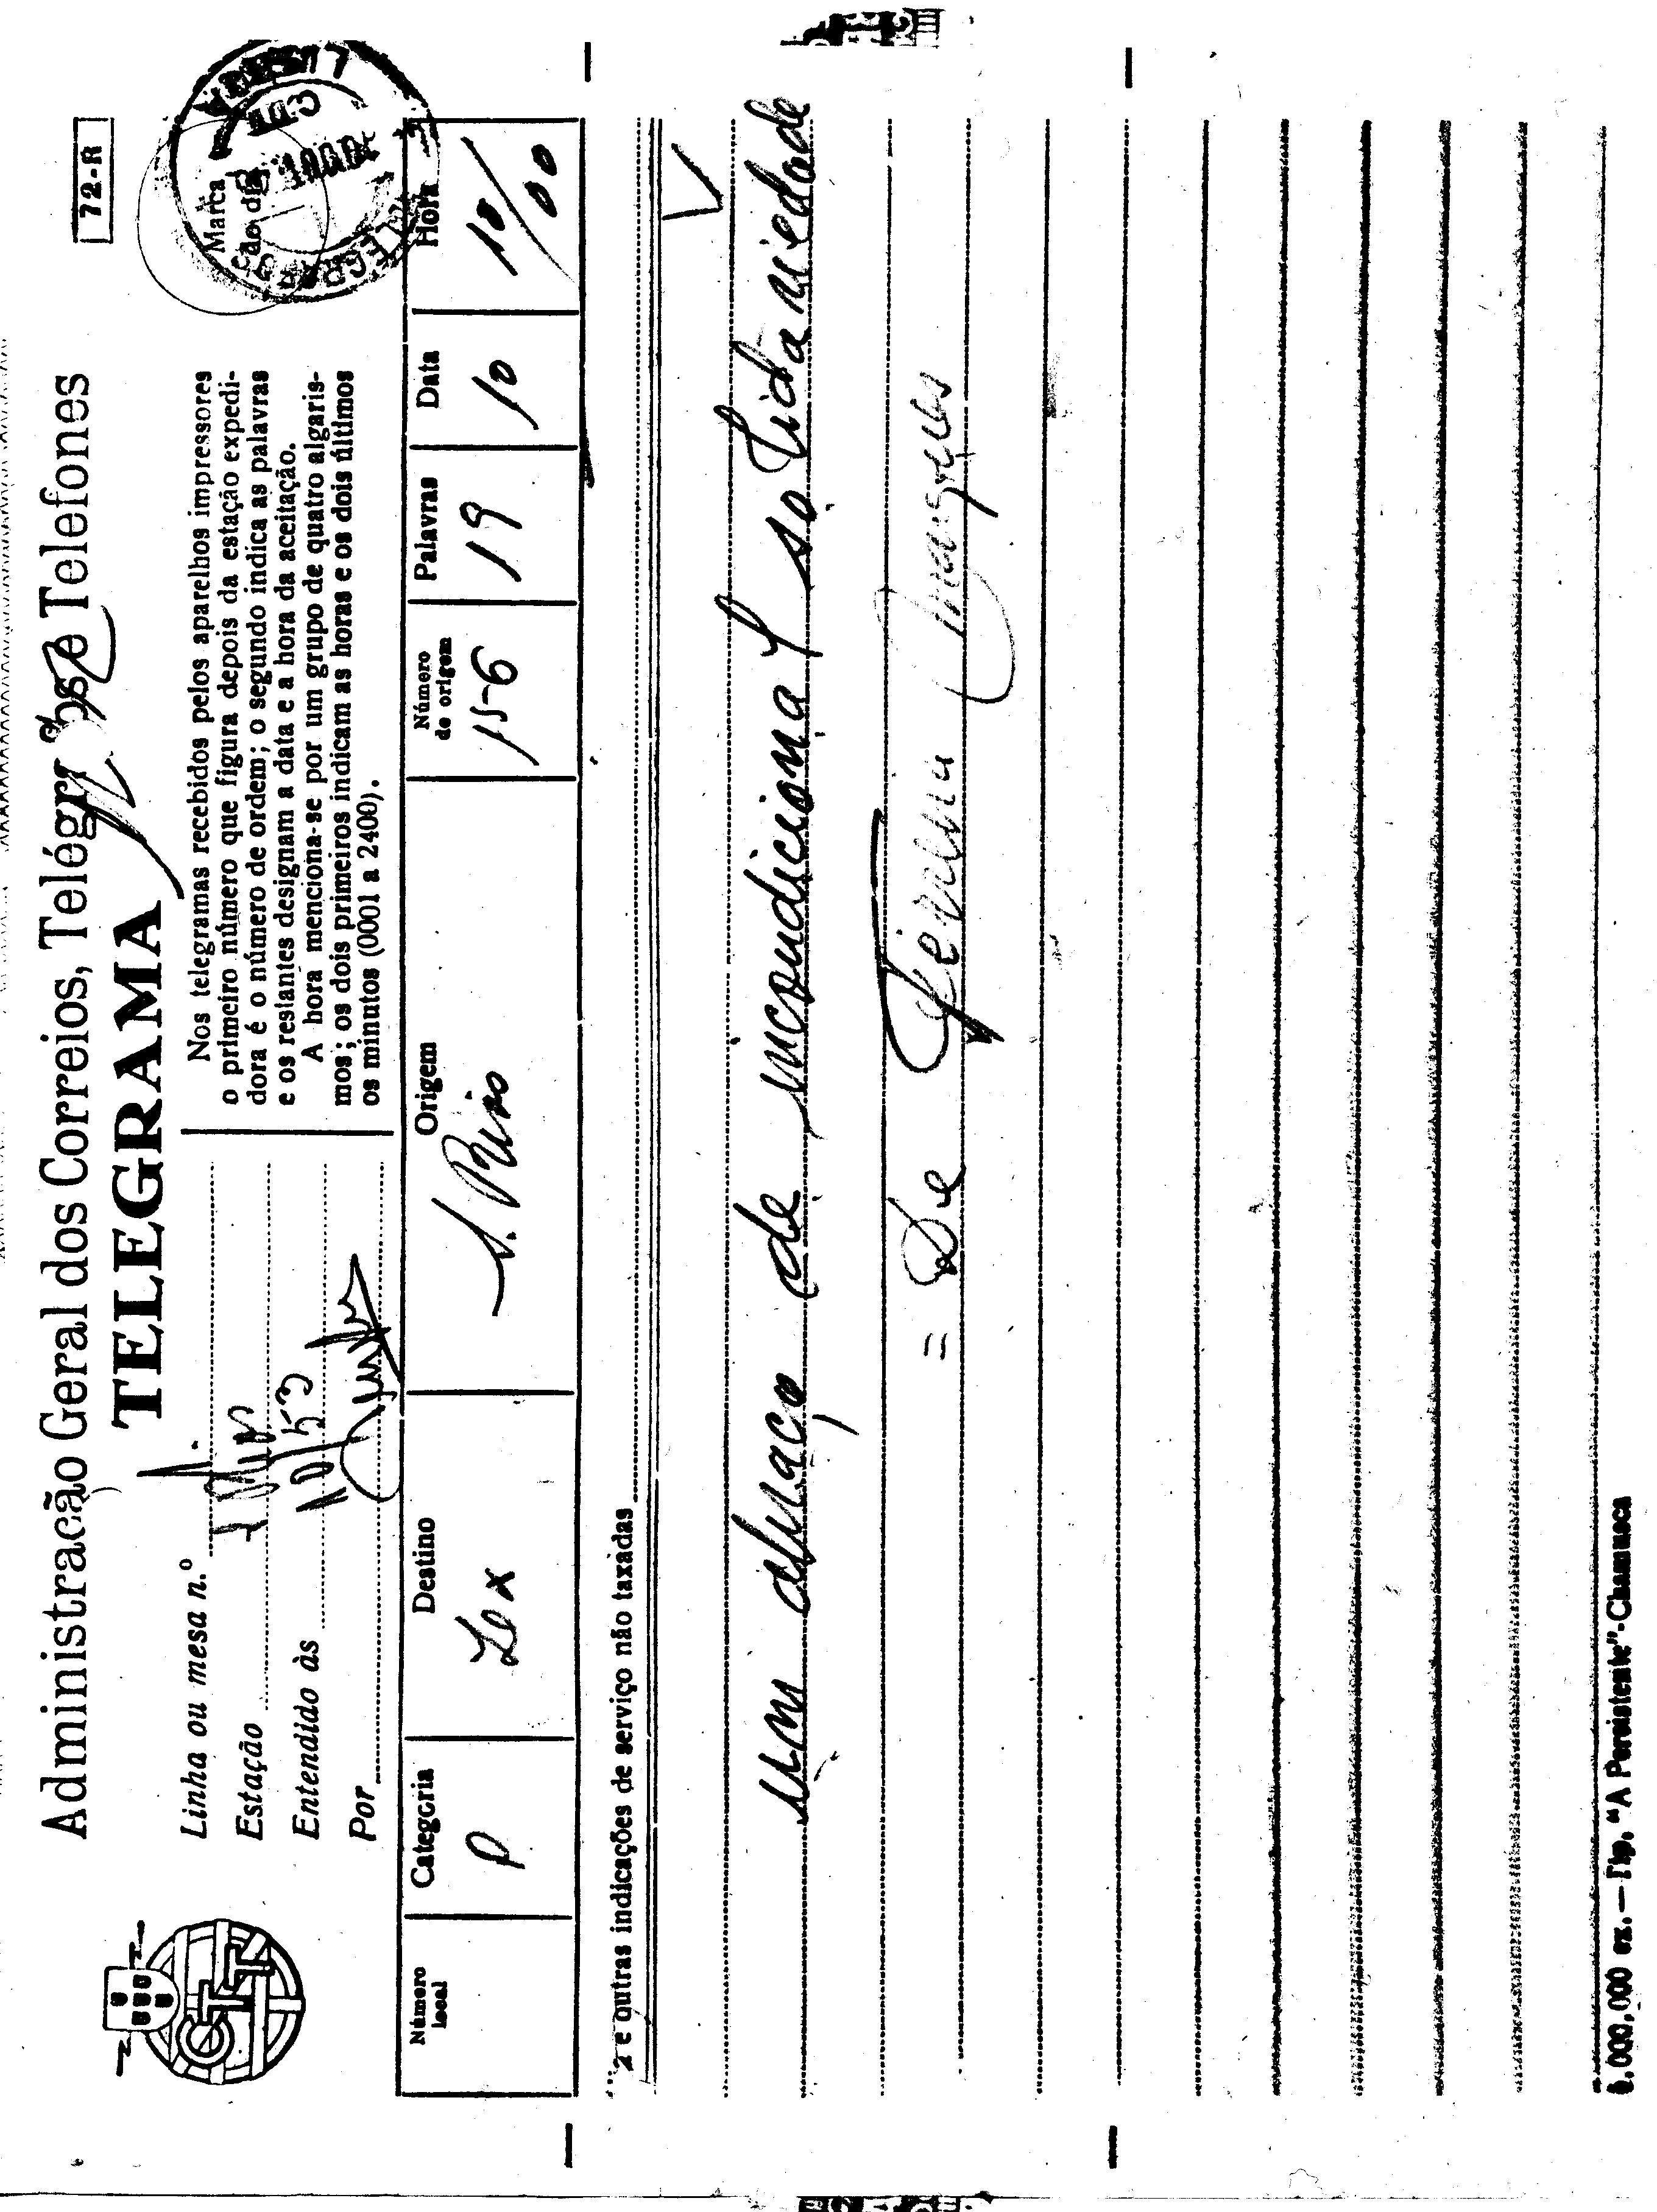 72-R
Administração Geral dos Correios, Telégr e Telefones
TELEGRAMA
Linha ou mesa n.º
Estação
Entendido às
Por
Nos telegramas recebidos pelos aparelhos impressores
o primeiro número que figura depois da estação expedi-
dora é o número de ordem; o segundo indica as palavras
e os restantes designam a data e a hora da aceitação.
A hora menciona-se por um grupo de quatro algaris-
mos; os dois primeiros indicam as horas e os dois últimos
os minutos (0001 a 2400).
Marca
do dia
CTT
Número local
Categoria
Destino
Origem
Número de origem
Palavras
Data
Hora
P
Lex
156
19
10
10/00
e outras indicações de serviço não taxadas
um abraço de incondicional solidariedade
= De Ferreira Marques
.000,000 ex.—Tip. "A Persistente"-Chamusca